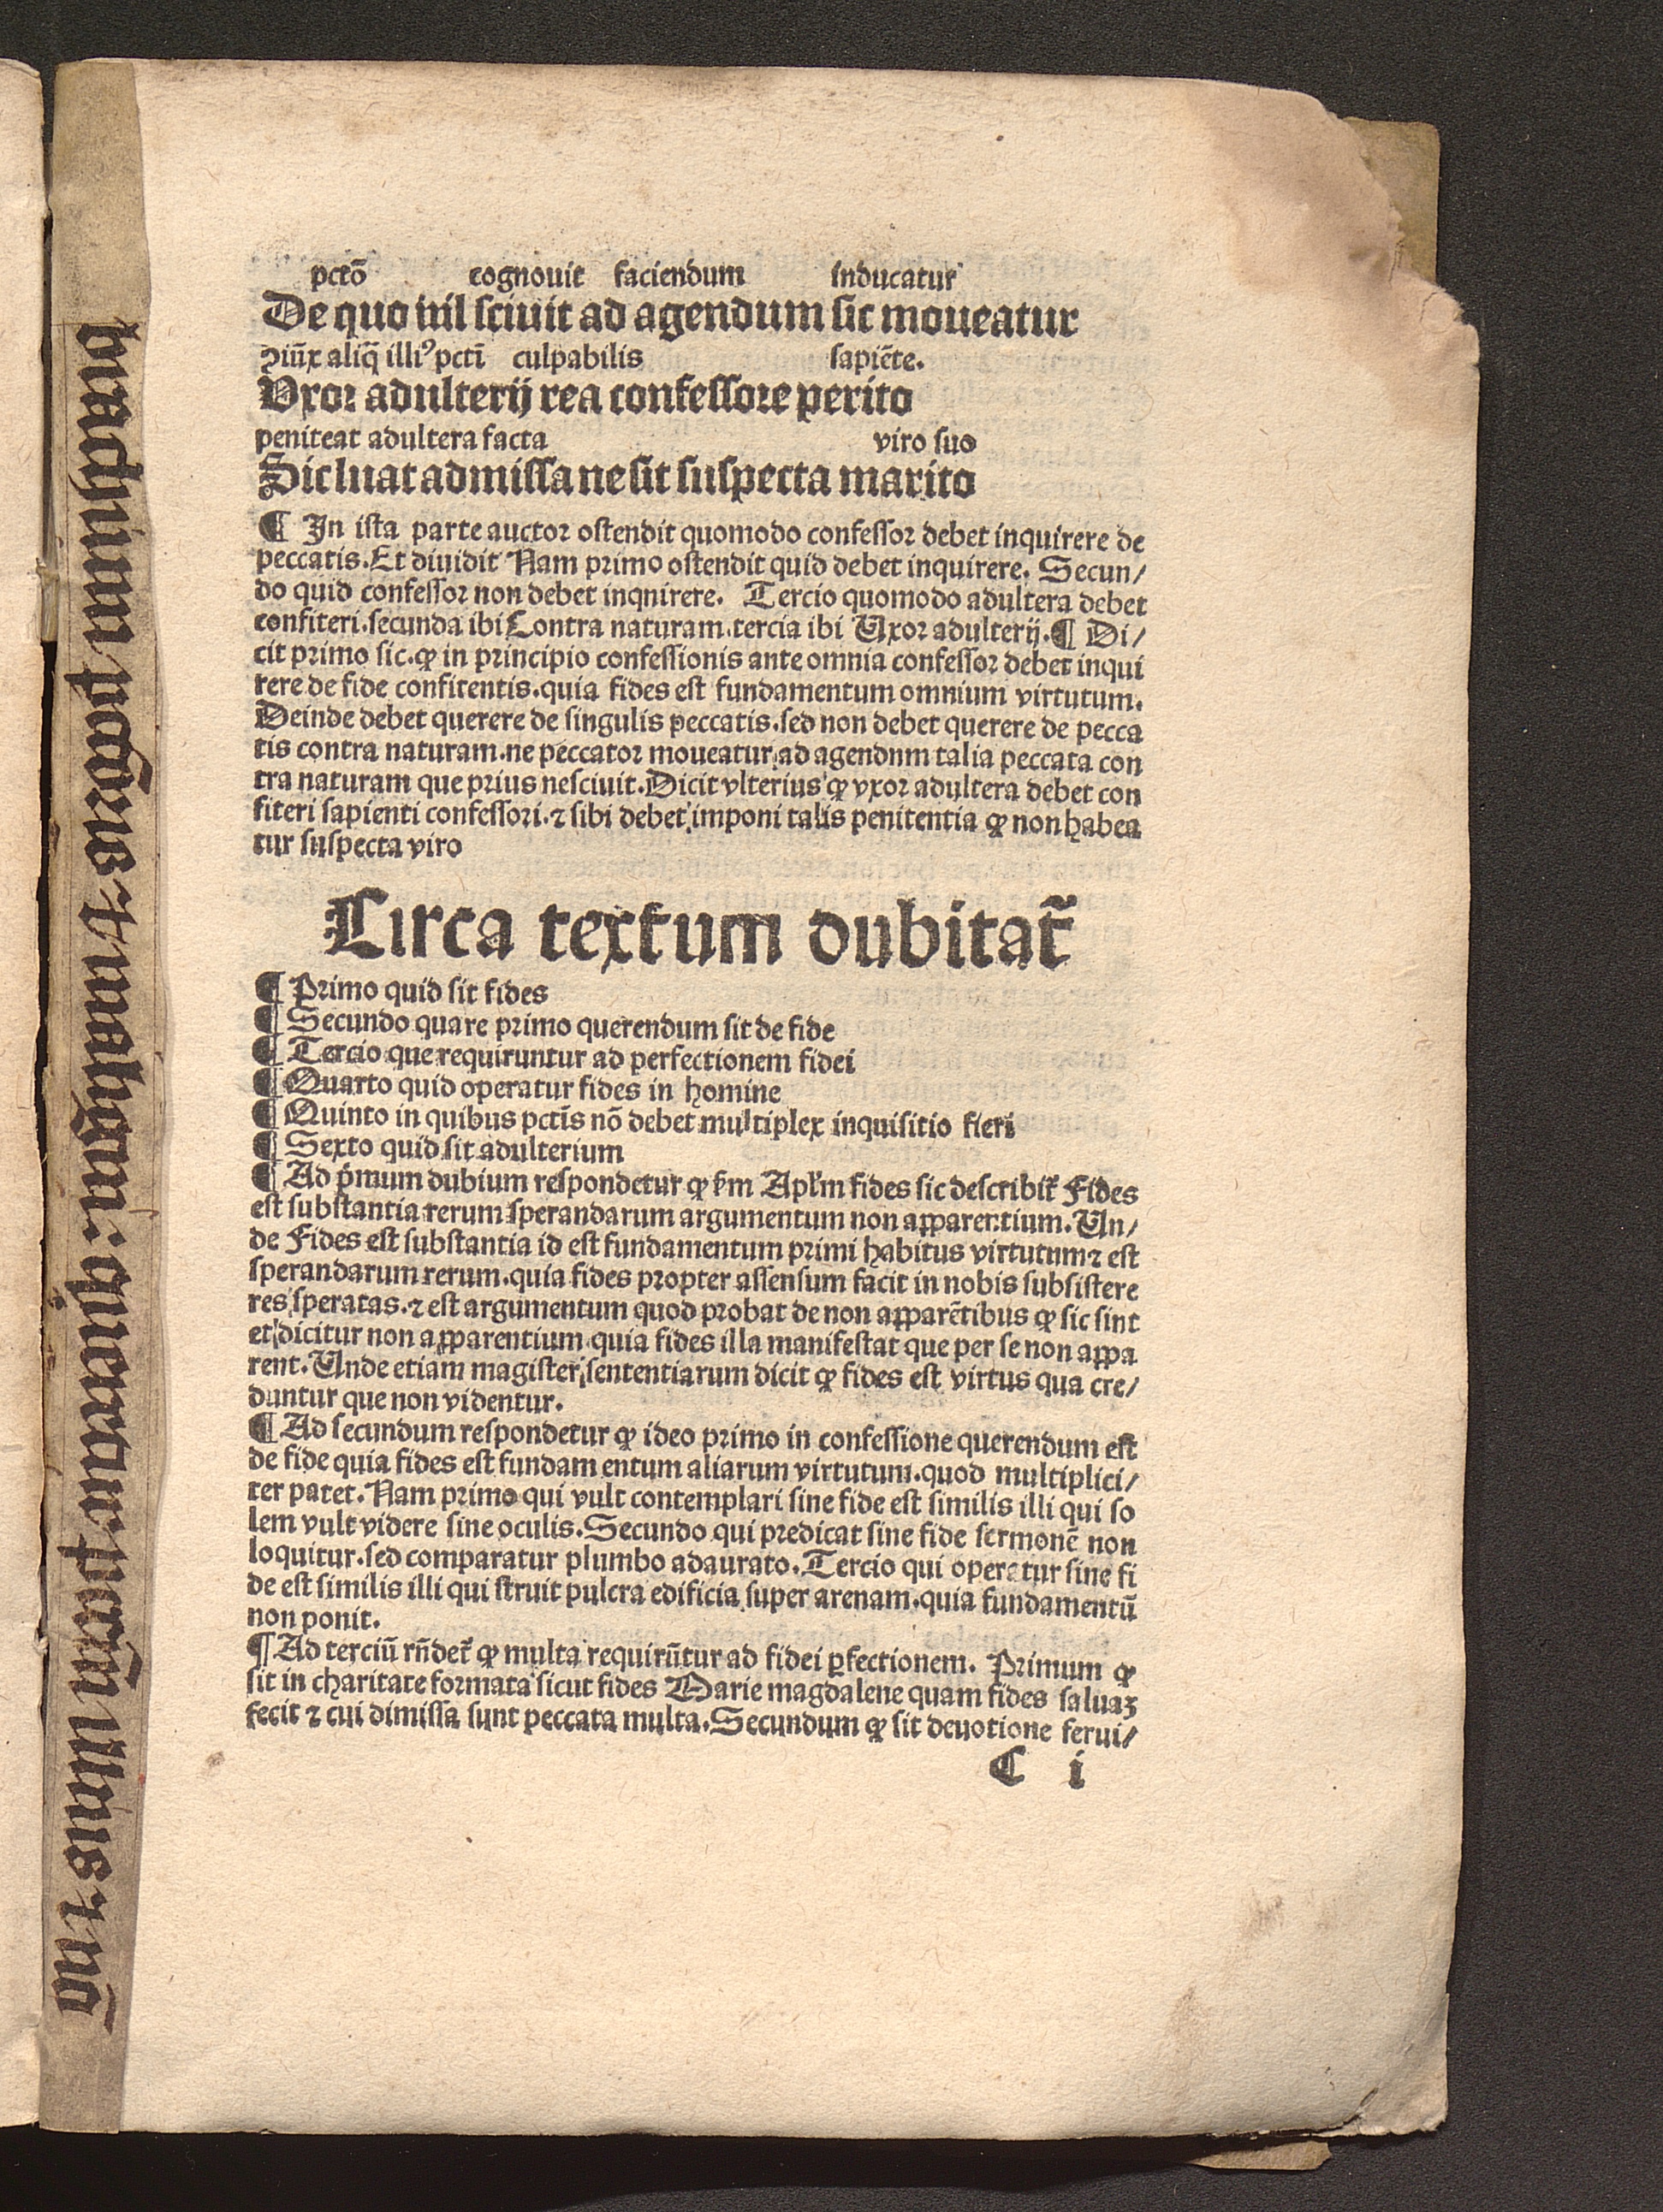 pctō cognouit faciendum inducatur
De quo nil sciuit ad agendum sic moueatur
aliq̄ illiꝰ pcti culpabilis sapiēte.
Uxor adulterij rea confessore perito
peniteat adultera facta viro suo
Sic luat admissa ne sit suspecta marito
¶ In ista parte auctor ostendit quomodo confessor debet inquirere de
peccatis. Et diuidit Nam primo ostendit quid debet inquirere. Secun/
do quid confessor non debet inqnirere. Tercio quomodo adultera debet
confiteri. secunda ibi Contra naturam. tercia ibi Uxor adulterij. ¶ Di/
cit primo sic. ꝙ in principio confessionis ante omnia confessor debet inqui
rere de fide confitentis. quia fides est fundamentum omnium virtutum.
Deinde debet querere de singulis peccatis. sed non debet querere de pecca
tis contra naturam. ne peccator moueatur ad agendnm talia peccata con
tra naturam que prius nesciuit. Dicit vlterius ꝙ vxor adultera debet con
fiteri sapienti confessori. ⁊ sibi debet imponi talis penitentia ꝙ non habea
tur suspecta viro
Circa textum dubitat̄
¶ Primo quid sit fides
¶ Secundo quare primo querendum sit de fide
¶ Tercio que requiruntur ad perfectionem fidei
¶ Quarto quid operatur fides in homine
¶ Quinto in quibus pctīs nō debet multiplex inquisitio fieri
¶ Sexto quid sit adulterium
¶ Ad p̄mum dubium respondetur ꝙ ẜm Apl'm fides sic describit᷑ Fides
est substantia rerum sperandarum argumentum non apparentium. Un/
de Fides est substantia id est fundamentum primi habitus virtutum ⁊ est
sperandarum rerum. quia fides propter assensum facit in nobis subsistere
res speratas. ⁊ est argumentum quod probat de non apparētibus ꝙ sic sint
et dicitur non apparentium quia fides illa manifestat que per se non appa
rent. Unde etiam magister sententiarum dicit ꝙ fides est virtus qua cre/
duntur que non videntur.
¶ Ad secundum respondetur ꝙ ideo primo in confessione querendum est
de fide quia fides est fundam entum aliarum virtutum. quod multiplici/
ter patet. Nam primo qui vult contemplari sine fide est similis illi qui so
lem vult videre sine oculis. Secundo qui predicat sine fide sermonē non
loquitur. sed comparatur plumbo adaurato. Tercio qui operatur sine fi
de est similis illi qui struit pulcra edificia super arenam. quia fundamentū
non ponit.
¶ Ad terciū rn̄det᷑ ꝙ multa requirūtur ad fidei ꝑfectionem. Primum ꝙ
sit in charitate formata sicut fides Marie magdalene quam fides saluaꝫ
fecit ⁊ cui dimissa sunt peccata multa. Secundum ꝙ sit deuotione ferui/
C i